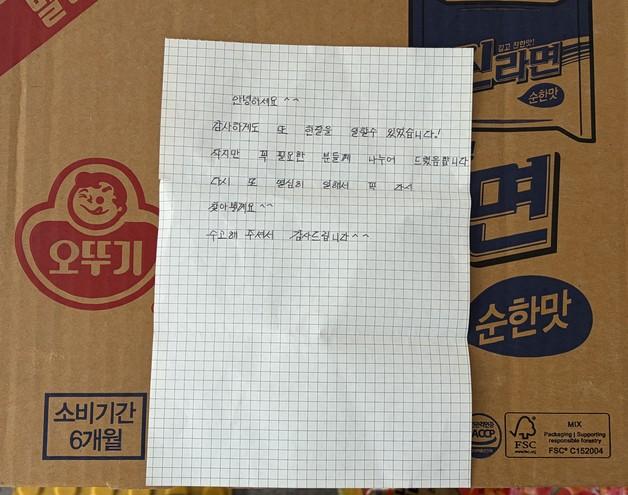 안녕하세요 ^^
감사하게도 또 한달을 일할수 있었습니다!
작지만 꼭 필요한 분들께 나누어 드렸음합니다
다시 또 열심히 일해서 꼭 다시
찾아뵐게요 ^^
수고해 주셔서 감사드립니다 ^^
깊고 진한맛!
라면
순한맛
면
순한맛
오뚜기
소비기간
6개월
ACCP
FSC
MIX
Packaging | Supporting
responsible forestry
FSC® C152004